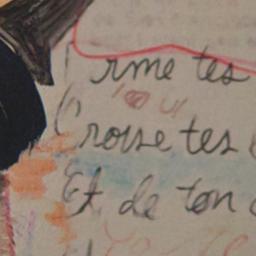 rme tes
Croise tes
Et de ton